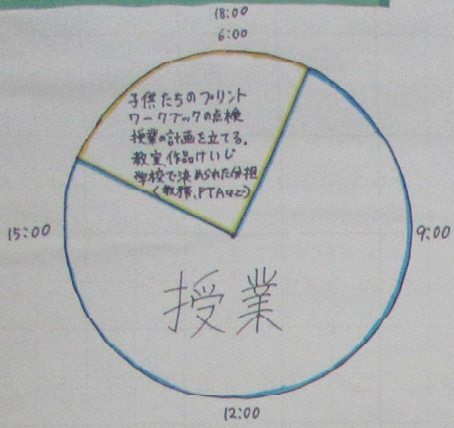 18:00
6:00
子供たちのプリント
ワークブックの点検
授業の計画を立てる。
教室作品けいじ
学校で決められた分担
(教務、PTAなど)
15:00
9:00
授業
12:00